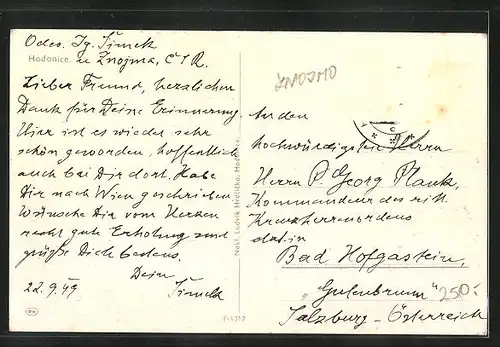 Odes. Ig. Šimek
Hodonice. u Znojma, ČSR.
Lieber Freund, herzlichen
Dank für Deine Erinnerung
Hier ist es wieder sehr
schön geworden, hoffentlich
auch bei Dir dort. Habe
Dir nach Wien geschrieben
Wünsche Dir vom Herzen
recht gute Erholung und
grüße Dich bestens.
Dein
22.9.49 Šimek
Nakl. Ludvík Hodonice.
F-1312
ZNOJMO
An den
hochwürdigsten Herrn
Herrn P. Georg Plank,
Kommandeur des ritt.
Kreuzherrenordens
dzt. in
Bad Hofgastein,
"Gutenbrunn" 250.-
Salzburg - Österreich